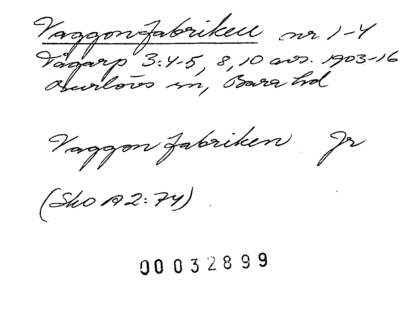 Vaggonfabriken nr 1-4
Vågarp 3:4-5, 8, 10 avs. 1903-16
Burlövs sn, Bara hd
Vaggonfabriken Jr
(Sko A2:74)
00032899